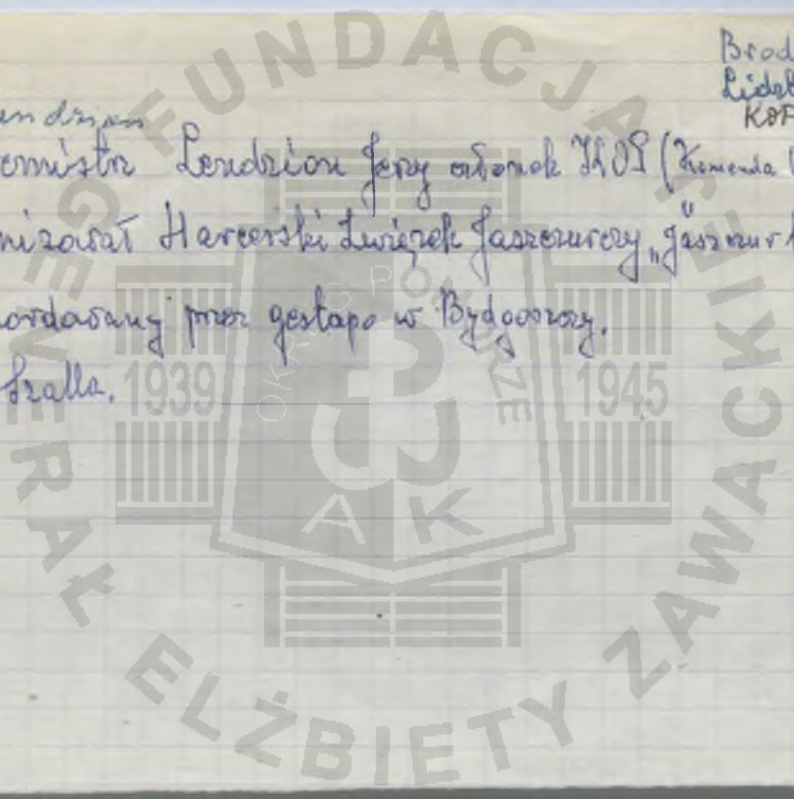 Brod
Lidzb
KOP
endzion
emistrz Lendzion Jerzy członek KOP (Komenda
nizował Harcerski Związek Jaszczurczy "Jaszczur
ordowany przez gestapo w Bydgoszczy.
Szalla.
FUNDACJA GENERAŁ ELŻBIETY ZAWACKIEJ
OKRĘG POMORZE
1939 1945
AK